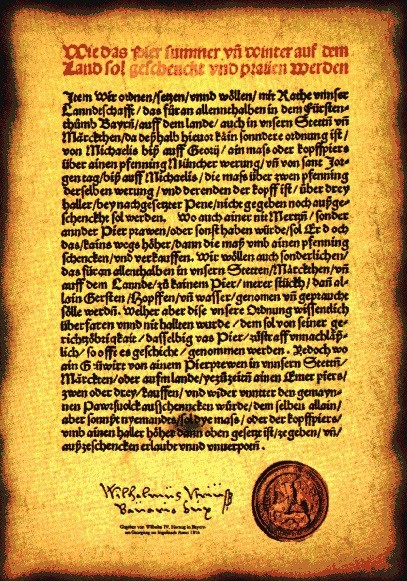 Wie das Pier summer vñ winter auf dem
Land sol geschenckt vnd prauen werden
Item Wir ordnen/setzen/vnnd wöllen/ mit Rathe vnnser
Lanndtschafft/ das für an allennthalben in dem Fürsten-
thůmb Bayrn/auff dem lande/ auch in vnsern Stettñ vñ
Märckthen/da deßhalb hieuor kain sonndere ordnung ist/
von Michaelis biß auff Georij/ ain maß oder kopffpiers
über ainen pfenning Müncher werung/vñ von sant Jor-
gentag/biß auff Michaelis/ die maß über zwen pfenning
derselben werung/vnd derenden der kopff ist/über drey
haller/bey nachgesetzter Pene/nicht gegeben noch außge-
schenckht sol werden. Wo auch ainer nit Mertzñ/sonder
annder Pier prawen/oder sonst haben würde/sol Er d och
das/kains wegs höher/dann die maß vmb ainen pfenning
schencken/vnd verkauffen. Wir wöllen auch sonderlichen/
das für an allenthalben in vnsern Stetten/Märckthen/vñ
auff dem Lannde/zů kainem Pier/merer stückh/dañ al-
lain Gersten/Hopffen/vñ wasser/genomen vñ geprauche
sölle werdñ. Welher aber dise vnsere Ordnung wissendlich
überfaren vnnd nit hallten wurde/dem sol von seiner ge-
richtzöbrigkait/dasselbig vas Pier/zůstraff vnnachläß-
lich/so offt es geschiche/genommen werden. Jedoch wo
ain Gůwirt von ainem Pierprewen in vnnsern Stettñ/
Märckten/oder aufm lande/yezůzeitñ ainen Emer piers/
zwen oder drey/kauffen/vnd wider vnnter den gemaynn-
nen Pawrßuolck ausschenncken würde/dem selben allain/
aber sonnst nyemandts/sol dye maß/oder der kopffpiers/
vmb ainen haller höher dann oben gesetzt ist/ze geben/vñ/
außzeschencken erlaubt vnnd vnuerpotñ.
Gegeben von Wilhelm IV. Herzog in Bayern
am Georgitag zu Ingolstadt Anno 1516